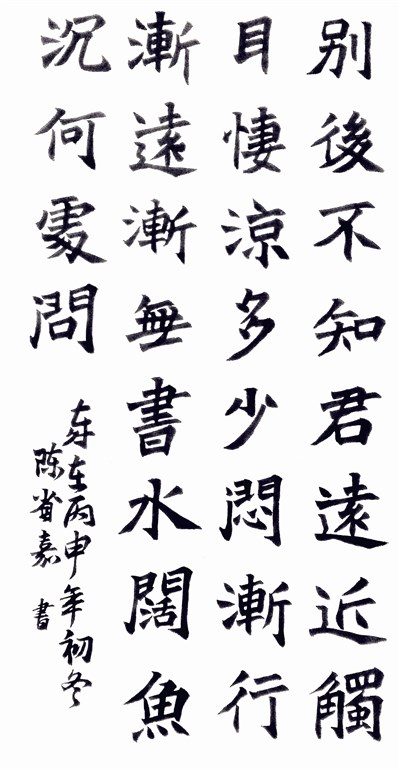 别後不知君遠近觸
目悽涼多少悶漸行
漸遠漸無書水闊魚
沉何處問
歲在丙申年初冬
陈省嘉書